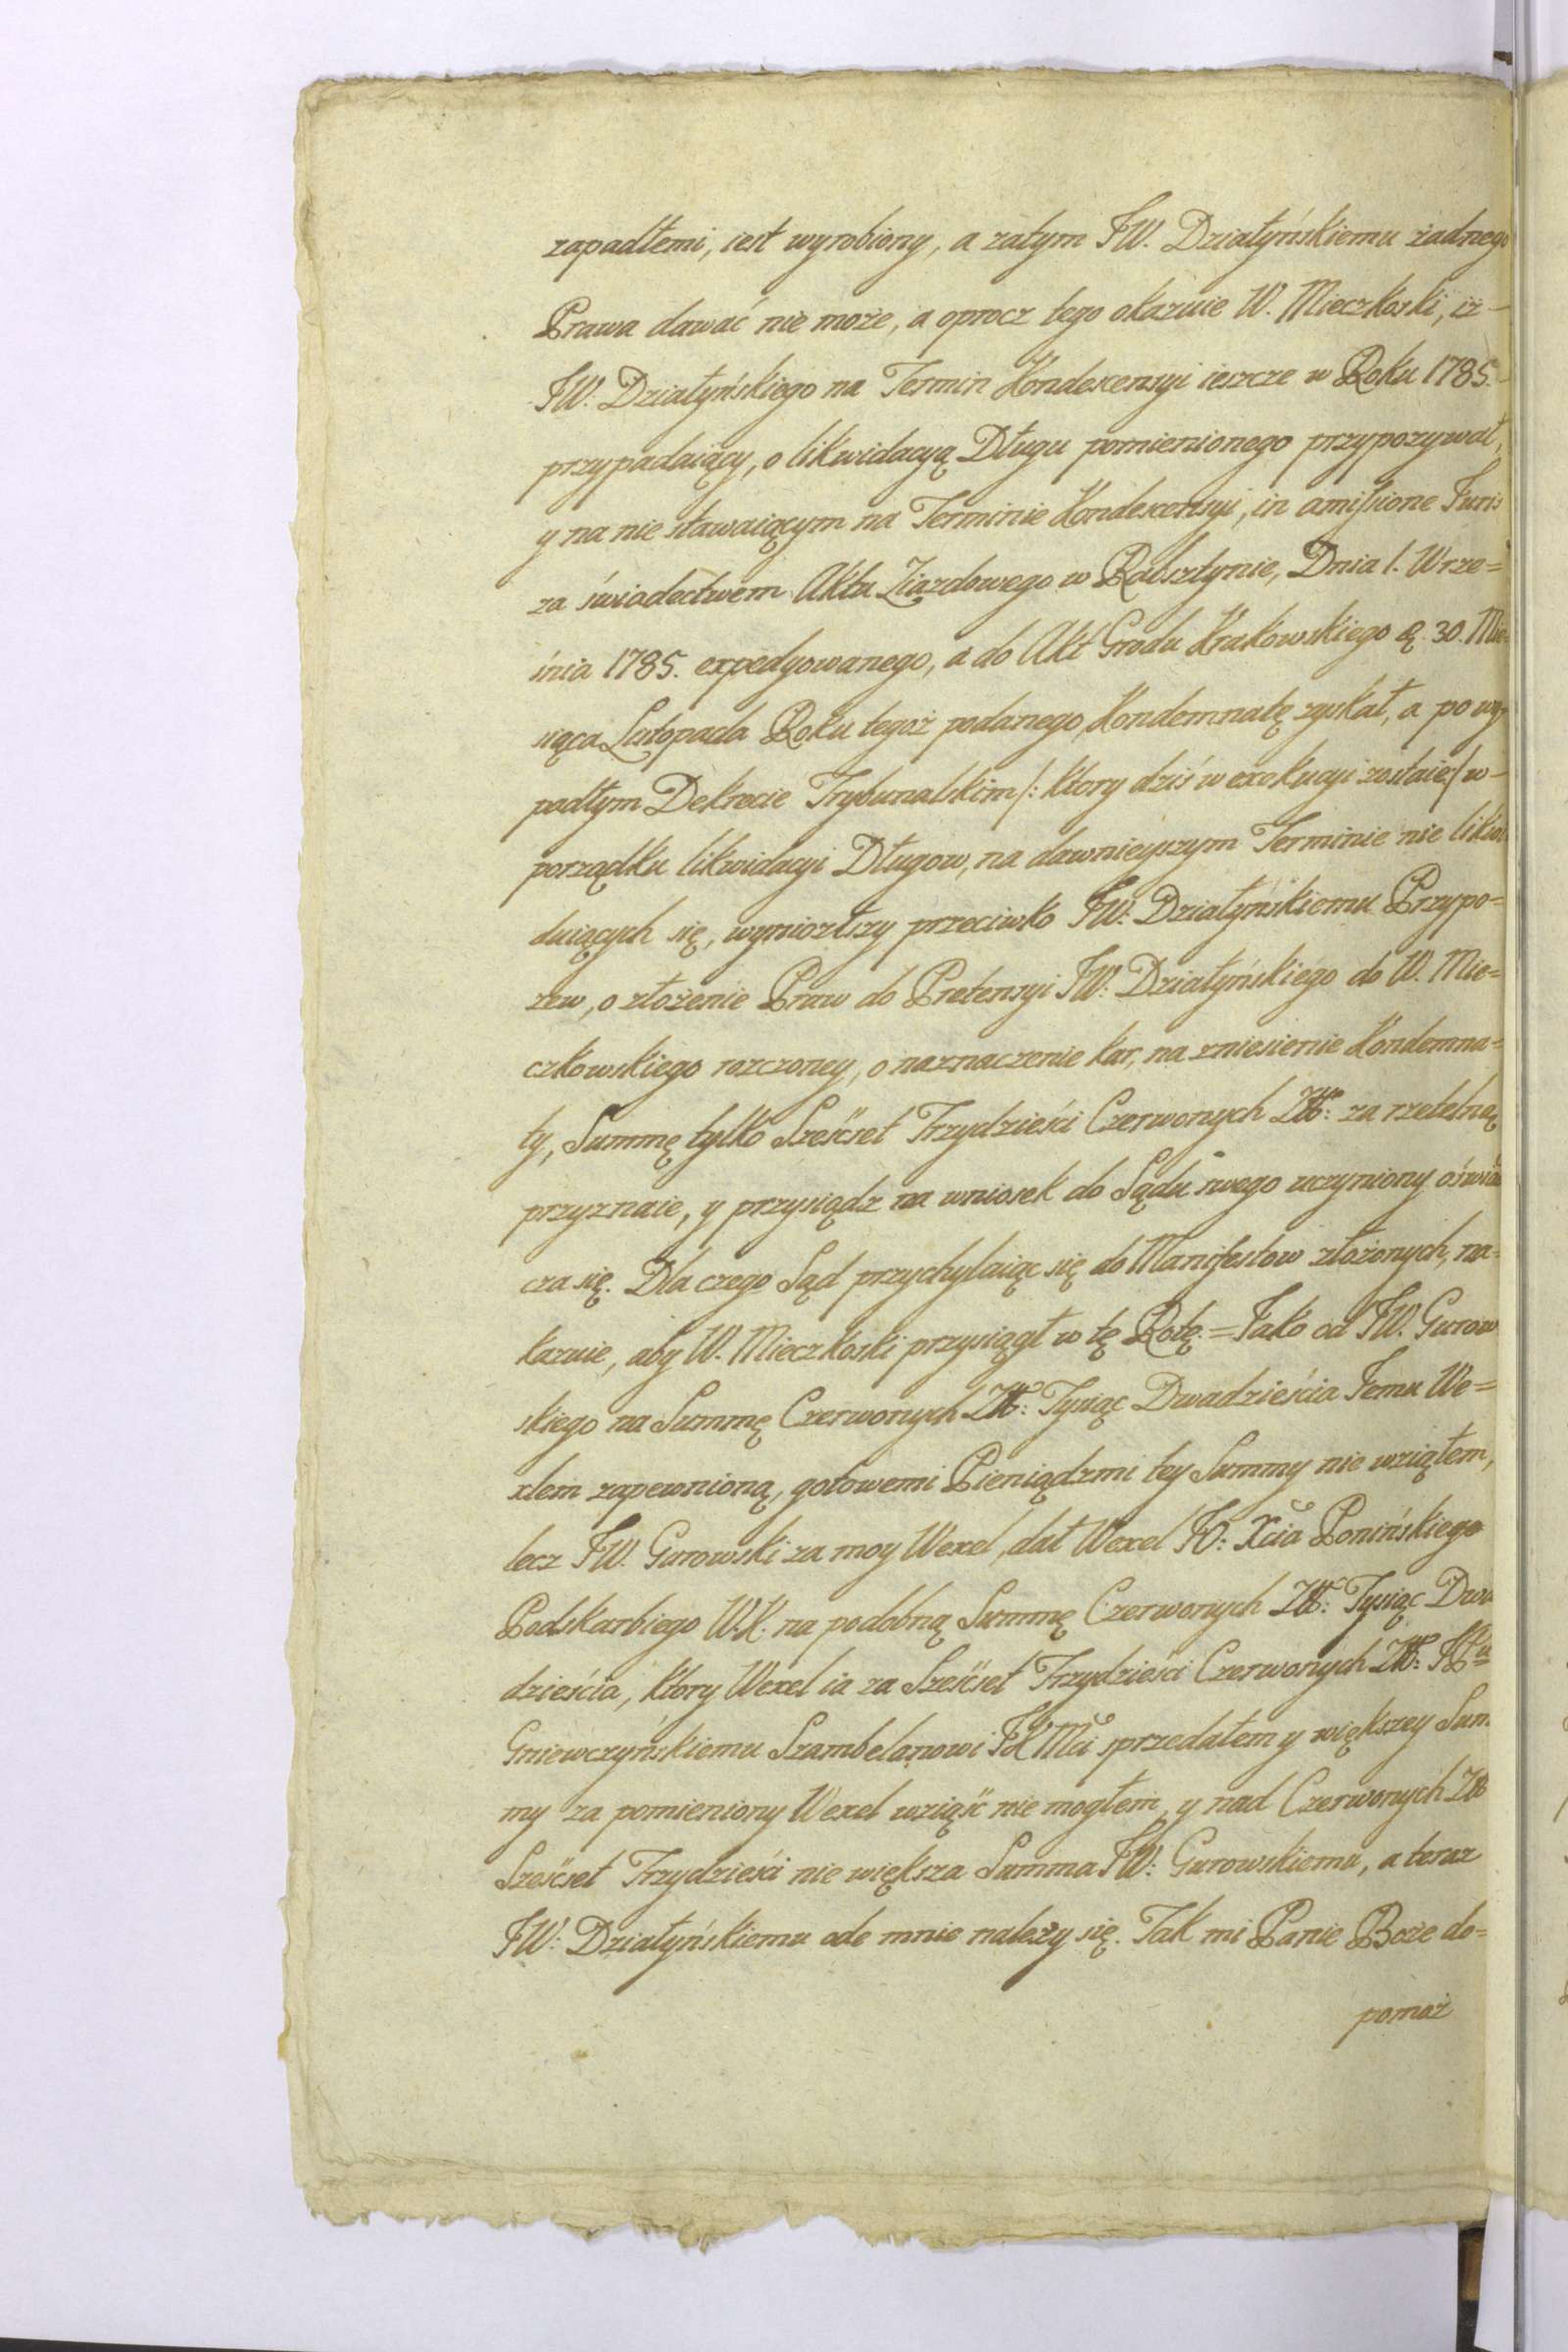 zapadłemi, iest wyrobiony, a zatym JW. Działyńskiemu żadnego
Prawa dawać nie może, a oprocz tego okazuie W. Mieczkoski, iż
JW. Działyńskiego na Termin Kondescensyi ieszcze w Roku 1785.
przypadaiący, o likwidacyą Długu pomienionego przypozywał,
y na nie stawaiącym na Terminie Kondescensyi, in amissione Juris
za świadectwem Aktu Ziazdowego w Rabsztynie, Dnia 1. Wrze=
śnia 1785. expedyowanego, a do Akt Grodu Krakowskiego 30. Mie
siąca Listopada Roku tegoż podanego, Kondemnatę zyskał, a po wy
padłym Dekrecie Trybunalskim /: ktory dziś w exekucyi zostaie :/ w
porządku likwidacyi Długow, na dawnieyszym Terminie nie likwi
duiących się, wyniozłszy przeciwko JW: Działyńskiemu Przypo=
zew, o złożenie Praw do Pretensyi JW: Działyńskiego do W. Mie=
czkowskiego rozczoney, o naznaczenie kar, na zniesienie Kondemna=
ty, Summę tylko Sześćset Trzydzieści Czerwonych Złł: za rzetelną
przyznaie, y przysiądz na wniosek do Sądu swego uczyniony oświad
cza się. Dla czego Sąd przychylaiąc się do Manifestow złożonych, na=
kazuie, aby W. Mieczkoski przysiągł w tę Rotę. = Jako od JW. Gurow
skiego na Summę Czerwonych Złł: Tysiąc Dwadzieścia Jemu We=
xlem zapewnioną, gotowemi Pieniądzmi tey Summy nie wziąłem,
lecz JW. Gurowski za moy Wexel, dał Wexel JO: Xcia Ponińskiego
Podskarbiego W.K. na podobną Summę Czerwonych Złł: Tysiąc Dwa
dzieścia, ktory Wexel ia za Sześćset Trzydzieści Czerwonych Złł:
Gniewczyńskiemu Szambelanowi JKMci sprzedałem y większey Sum
my za pomieniony Wexel wziąść nie mogłem, y nad Czerwonych Złł
Sześćset Trzydzieści nie większa Summa JW: Gurowskiemu, a teraz
JW: Działyńskiemu ode mnie należy się. Tak mi Panie Boże do=
pomaż